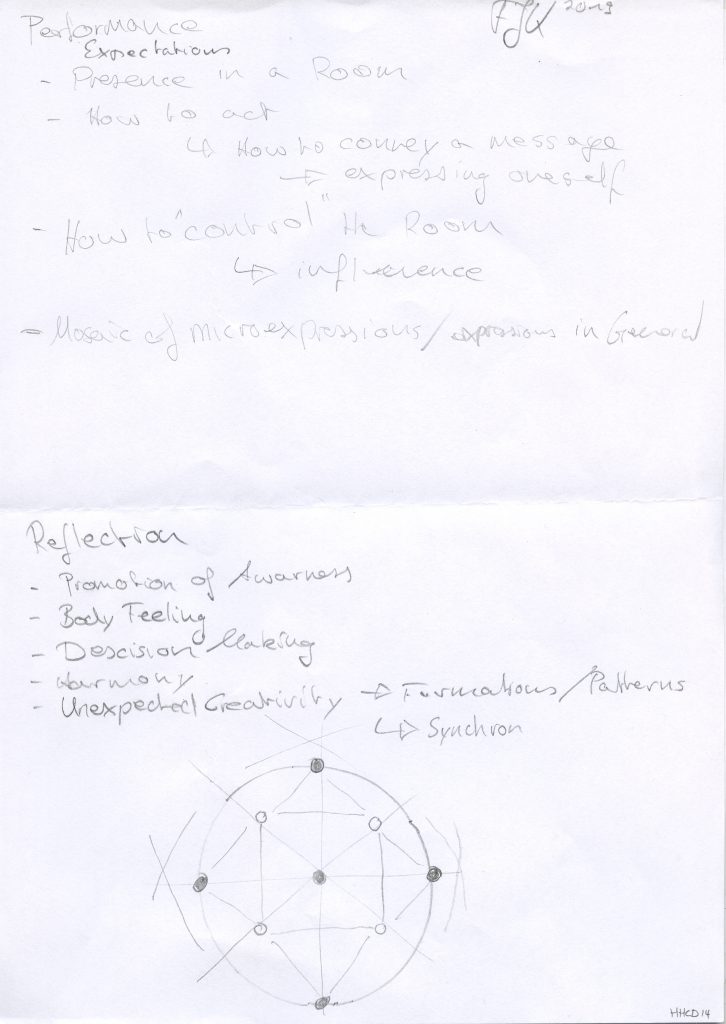 Performance
2019
Expectations
- Presence in a Room
- How to act
↳ How to convey a message
→ expressing oneself
- How to "control" the Room
↳ influerence
- Mosaic of microexpressions / expressions in General
Reflection
- Promotion of Awarness
- Body Feeling
- Descision Making
- Harmony
- Unexpected Creativity → Formations / Patterns
↳ Synchron
HHCD14